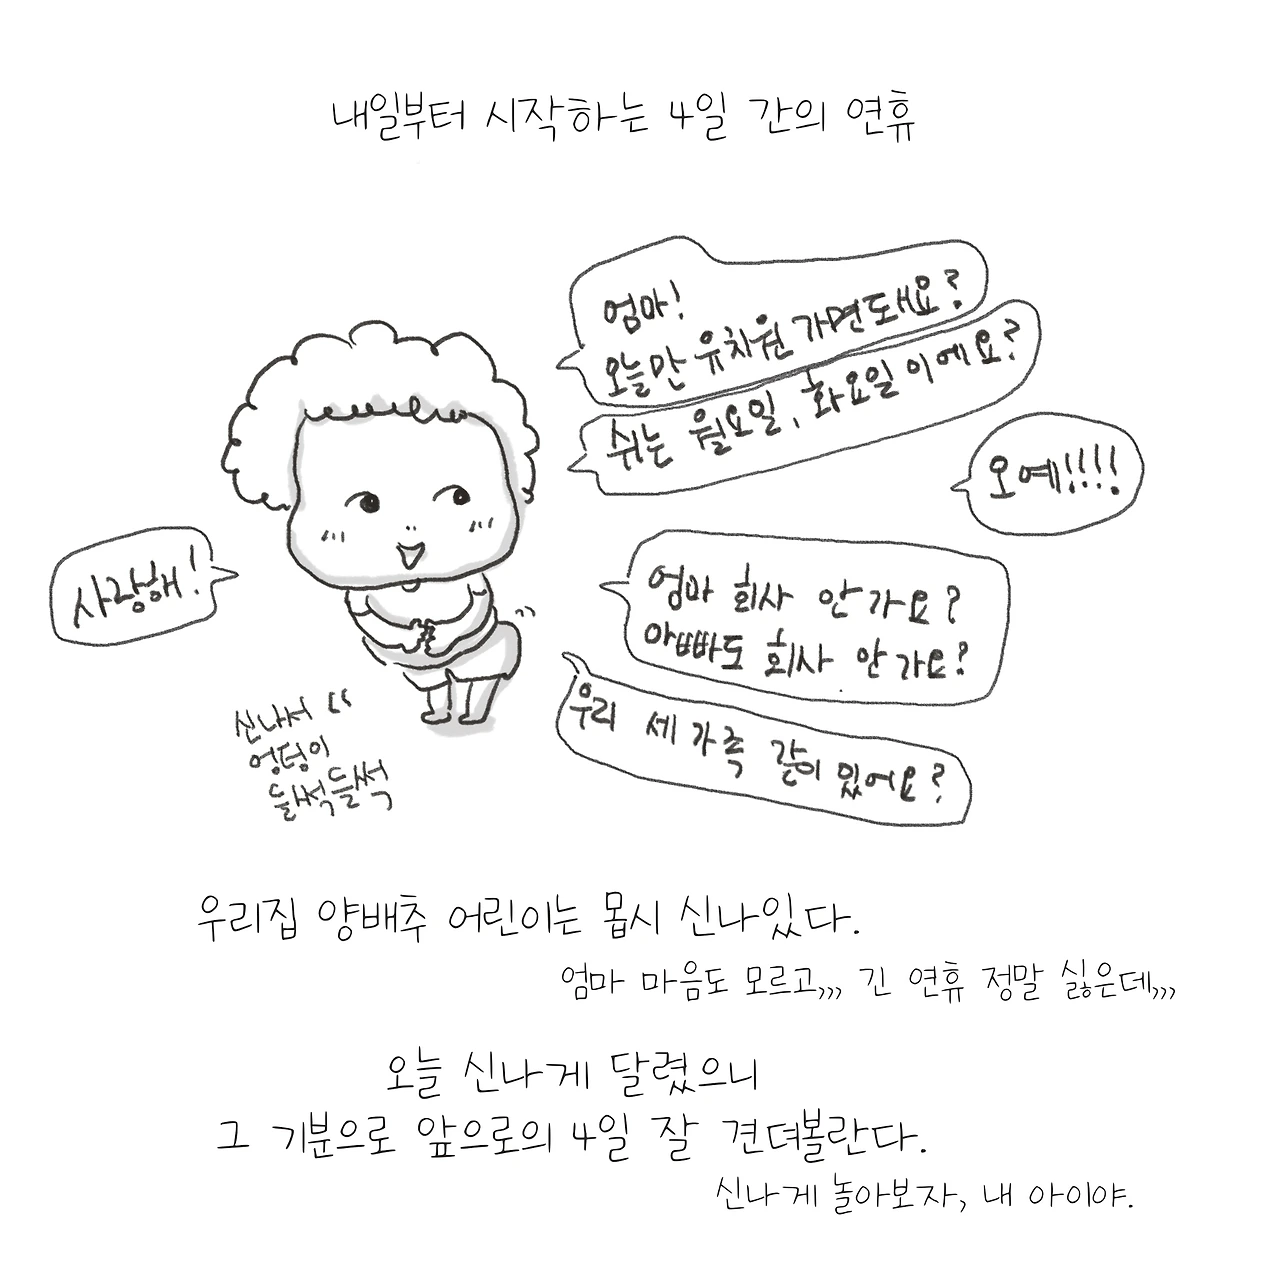 내일부터 시작하는 4일 간의 연휴
엄마!
오늘만 유치원 가면돼요?
쉬는 월요일, 화요일이에요?
오예!!!!
사랑해!
엄마 회사 안가요?
아빠도 회사 안가요?
우리 세가족 같이 있어요?
신나서
엉덩이
들썩들썩
우리집 양배추 어린이는 몹시 신나있다.
엄마 마음도 모르고,,, 긴 연휴 정말 싫은데,,,
오늘 신나게 달렸으니
그 기분으로 앞으로의 4일 잘 견뎌볼란다.
신나게 놀아보자, 내 아이야.